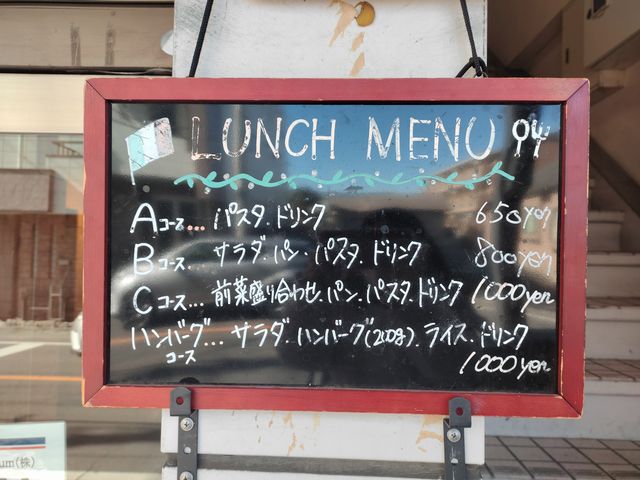 LUNCH MENU
Aコース... パスタ.ドリンク 650yen
Bコース... サラダ.パン.パスタ.ドリンク 800yen
Cコース... 前菜盛り合わせ.パン.パスタ.ドリンク 1000yen
ハンバーグ... サラダ.ハンバーグ(200g).ライス.ドリンク
コース
1000yen
um(株)